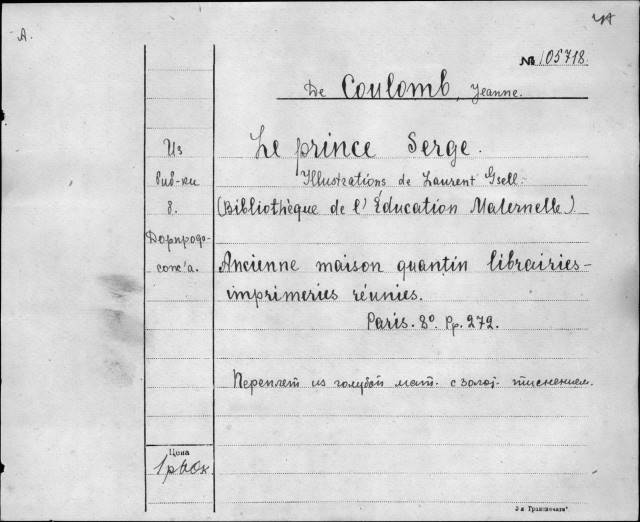 А.
№ 105718.
De Coulomb, Jeanne.
Le prince Serge.
Illustrations de Laurent Gsell.
(Bibliothèque de l' Éducation Maternelle)
Ancienne maison quantin librairies-
imprimeries réunies.
Paris. 8º. Pp. 272.
Переплет из голубой мат. с золот. тиснением.
Из
биб-ки
в.
Цена
1р40к
3-я Гранпечать"